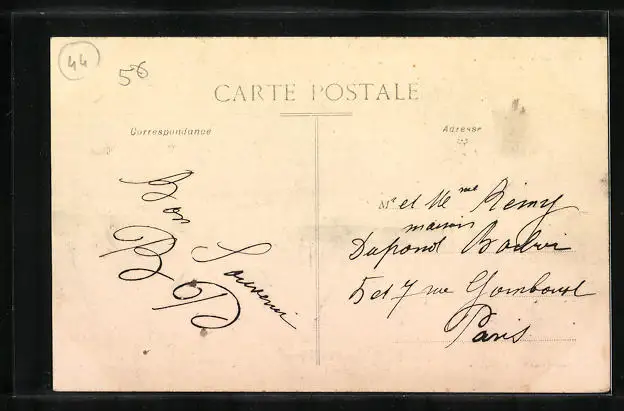 44
56
CARTE POSTALE
Correspondance
Adresse
Bon
Souvenir
B P
Mr et Mme Rémy
maison
Dupond
5 et 7 rue Gomboust
Paris